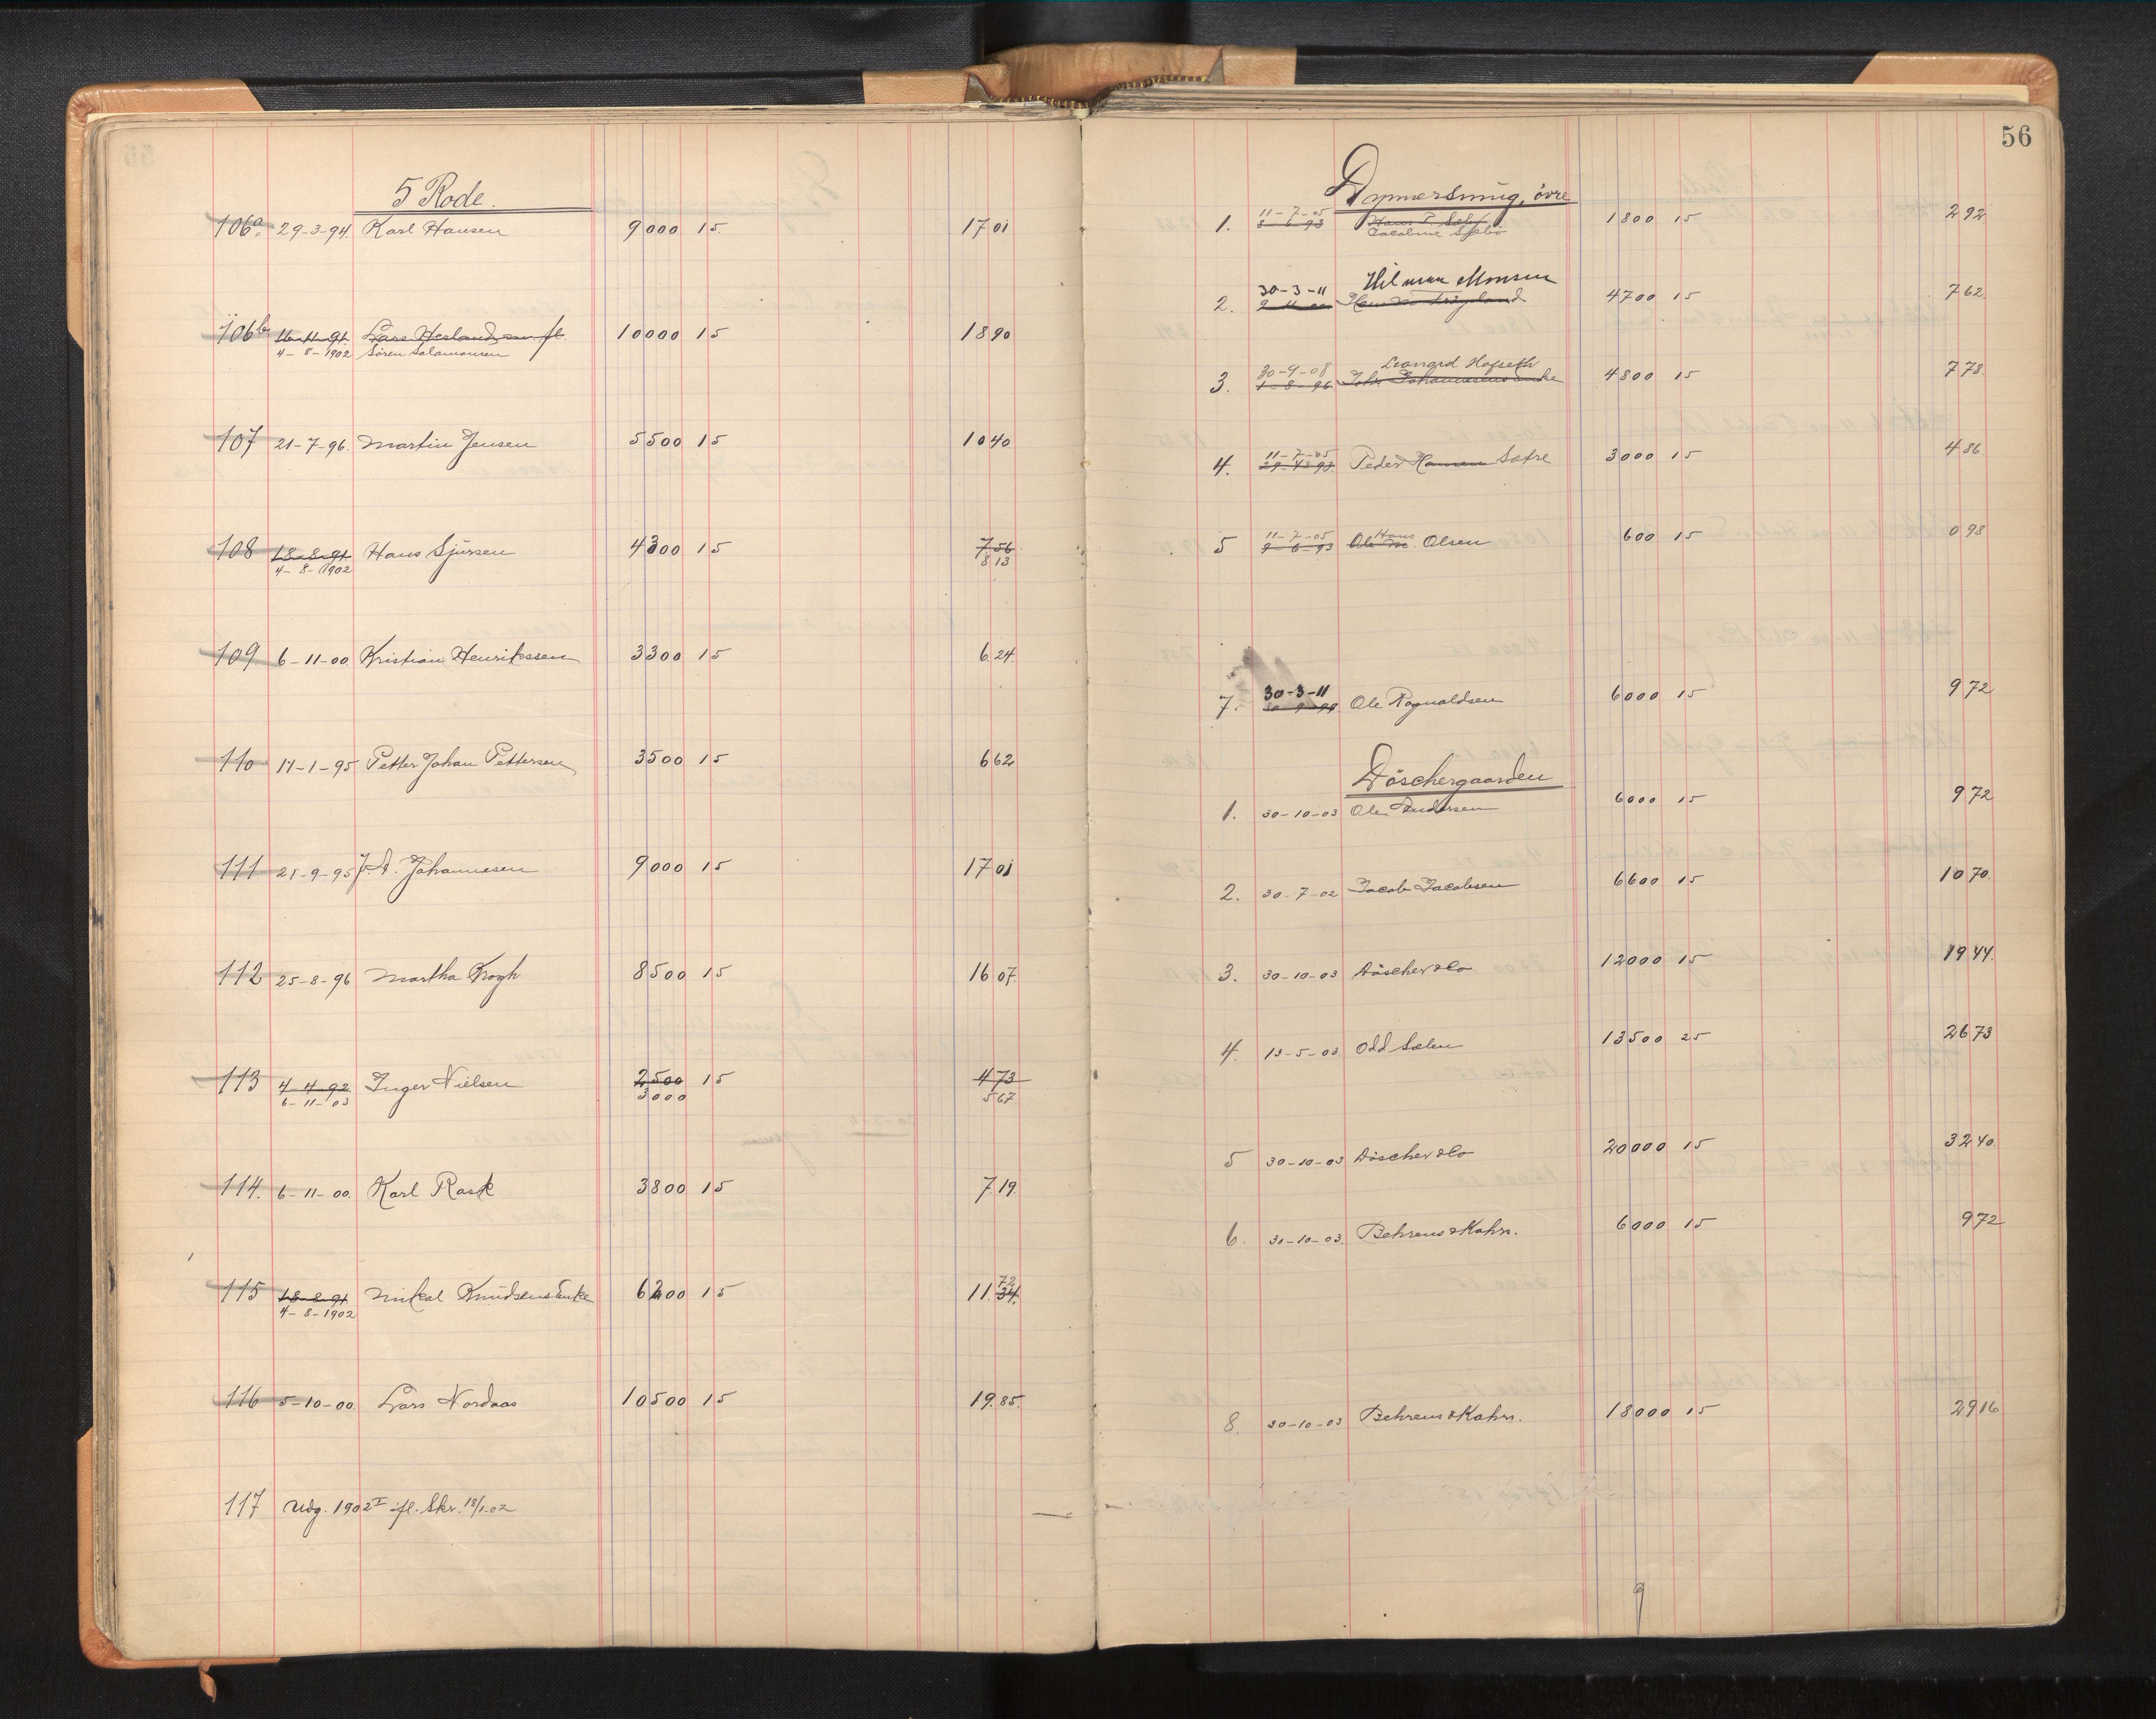 5 Rode.
106a 29-3-94. Karl Hansen 9000 15. 1701
106b 16-11-91. Lars Herland m. fl. 10000 15 1890
4-8-1902 Sören Salamonsen
107 21-7-96. Martin Jensen 5500 15 1040
108 18-8-91 Hans Sjursen 4300 15 756
4-8-1902 813
109 6-11-00 Kristian Henrikssen 3300 15 624
110 17-1-95 Petter Johan Pettersen 3500 15 662
111 21-9-95 J. A. Johannesen 9000 15 1701
112 25-8-96 Martha Krogh 8500 15 1607
113 4-4-92 Inger Nielsen 2500 15 473
6-11-03 3000 567
114. 6-11-00. Karl Rask 3800 15 719
72
115 18-8-91 Mikal Knudsens Enke 6200 15 11.34.
4-8-1902
116 5-10-00. Lars Nordaas 10500 15 19.85.
117 Udg. 1902 I ifl. Skr. 18/1.02 —
56
Dopmersmug, övre
11-7-05
1. 8-6-93 Hans P. 1800 15 292
Jacobine Sæbö
30-3-11 Hilmar Monsen
2. Hans 4700 15 762
30-9-08 Leonard Hofseth
3. 1-8-96 Johs Johannesens Enke 4800 15 778
11-7-05
4. 29-4-93. Peder Hansen Sætre 3000 15 486
11-7-05 Hans
5 9-6-93 Ole M. Olsen 600 15 098
30-3-11
7. Ole Rognaldsen 6000 15 972
Döschergaarden
1. 30-10-03 Ole Andersen 6000 15 972
2. 30-7-02 Jacob Jacobsen 6600 15 1070.
3. 30-10-03 Döscher & Co 12000 15 1944.
4. 13-5-03. Odd Salen 13500 25 2673
5 30-10-03 Döscher & Co 20000 15 3240.
6. 30-10-03. Behrens & Kahrs. 6000 15 972
8. 30-10-03 Behrens & Kahrs. 18000 15 2916